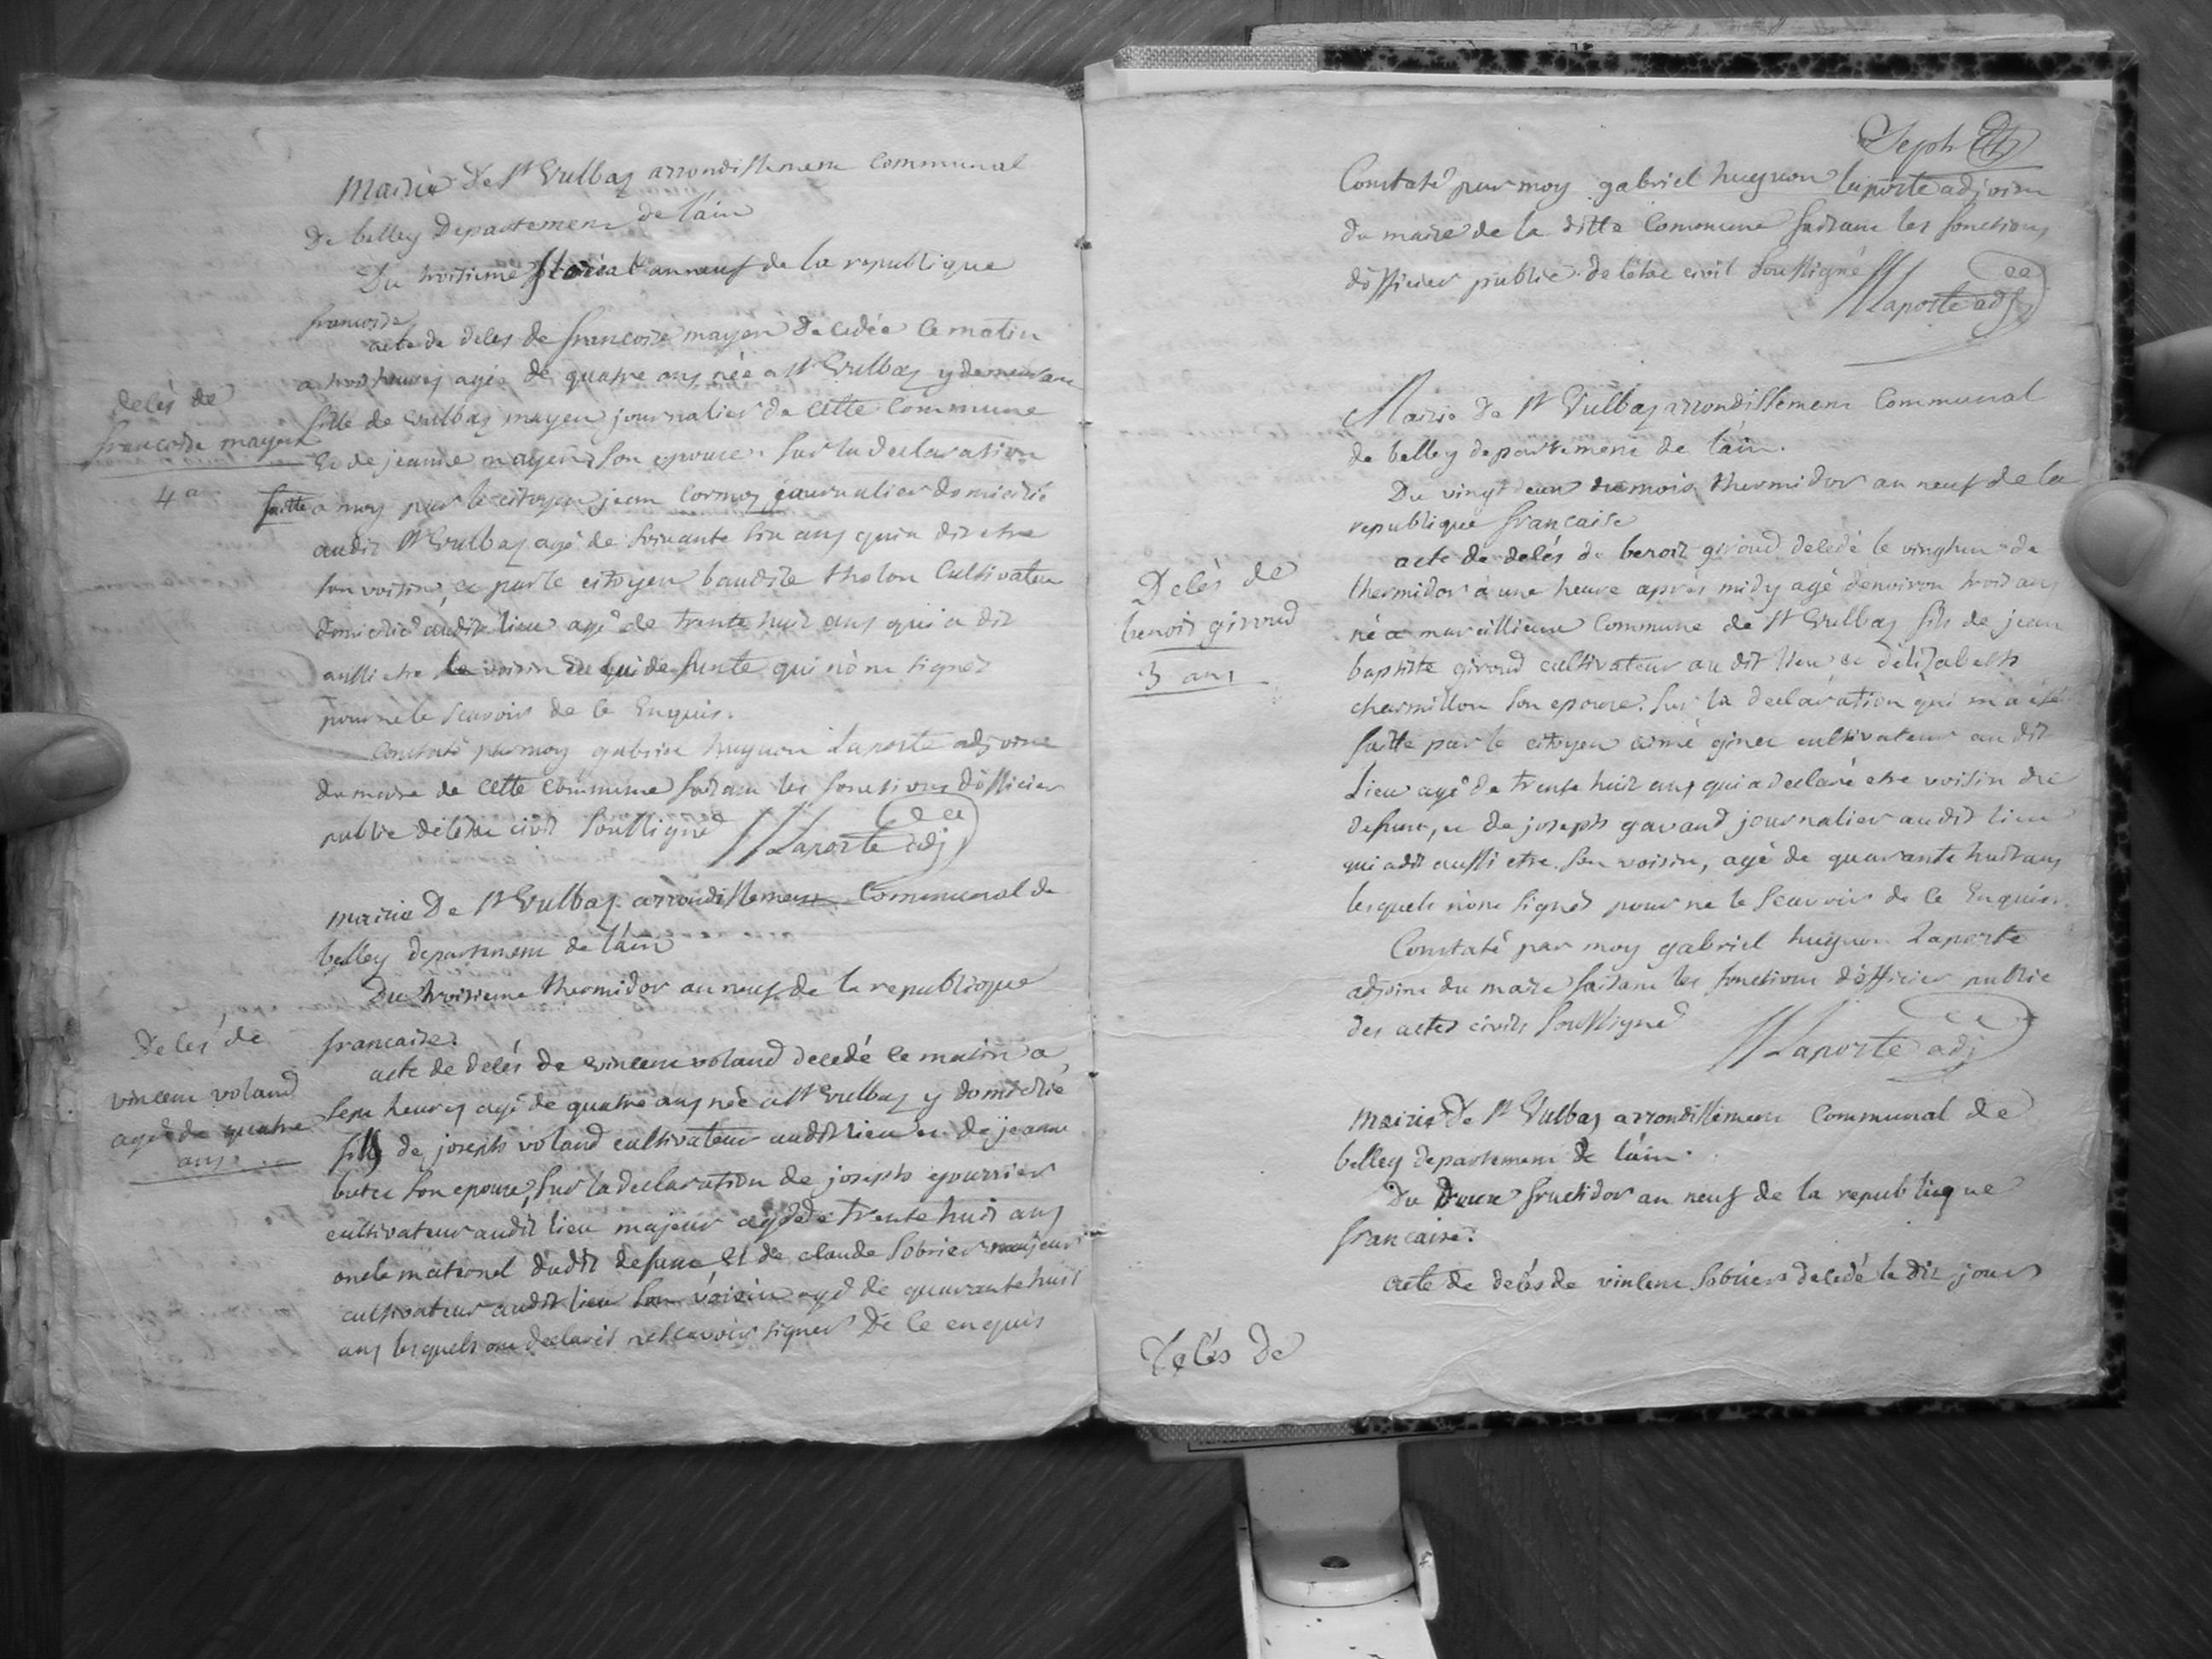 Mairie de St Vulbaz arrondissement Communal
de belley Departement de l'ain
Du troisieme floreal an neuf de la republique
francoise
acte de deces de francoise mayen decedée ce matin
a trois heures agée de quatre ans née a St Vulbaz y demeurant
deces de
francoise mayen
4 a
fille de vulbaz mayen journalier de cette Commune
et de jeanne mayen son epouse. Sur la declaration
faitte a moy par le citoyen jean Cormoz journalier domicilié
audit St Vulbaz agé de soixante six ans qui a dit etre
son voisin, et par le citoyen baudile tholon Cultivateur
domicilié audit lieu agé de trente huit ans qui a dit
aussi etre le voisin de la defunte qui n'ont signés
pour ne le scavoir de ce Enquis.
Constaté par moy gabriel huguon Laporte adjoint
du maire de cette Commune faisant les fonctions d'officier
public de l'état civil soussigné
Laporte adj
mairie De St Vulbaz arrondissement Communal de
belley departement de l'ain
Du troisieme thermidor an neuf de la republique
francaise.
Decés de
vincent voland
agé de quatre
ans
acte de decés de vincent voland decedé ce matin a
sept heures agé de quatre ans né a St Vulbaz y domicilié
fils de joseph voland cultivateur audit lieu et de jeanne
butet son epouse, sur la declaration de joseph gourrier
cultivateur audit lieu majeur agé de trente huit ans
oncle maternel dudit defunt et de claude sobrier majeur
cultivateur audit lieu son voisin agé de quarante huit
ans lesquels ont declarés ne scavoir signer De ce enquis
Sept
Constaté par moy gabriel huguon laporte adjoint
du maire de la ditte Commune faisant les fonctions
d'officier public de l'état civil soussigné
Laporte adj
Mairie de St Vulbaz arrondissement Communal
de belley departement de l'ain.
Du vingt deux du mois thermidor an neuf de la
republique francaise
Decés de
benoit giroud
3 ans
acte de decés de benoit giroud decedé le vingt un de
thermidor à une heure aprés midy agé d'environ trois ans
né a marcillieux Commune de St Vulbaz fils de jean
baptiste giroud cultivateur au dit lieu et d'elizabeth
charmillon son epouse. Sur la declaration qui m'a été
faitte par le citoyen aimé ginet cultivateur au dit
Lieu agé de trente huit ans qui a declaré etre voisin du
defunt, et de joseph gavand journalier audit lieu
qui a dit aussi etre son voisin, agé de quarante huit ans
lesquels n'ont signés pour ne le scavoir de ce Enquis.
Constaté par moy gabriel huguon Laporte
adjoint du maire faisant les fonctions d'officier public
des actes civils soussigné
Laporte adj
mairie de St Vulbaz arrondissement Communal de
belley departement de l'ain.
Du douze fructidor an neuf de la republique
francaise.
acte de decés de vincent sobrier decedé le dit jour
Decés de